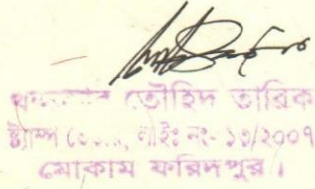 খন্দকার তৌহিদ তারিক
ষ্ট্যাম্প ভেন্ডার, লাইঃ নং- ১৬/২০০৭
মোকাম ফরিদপুর।